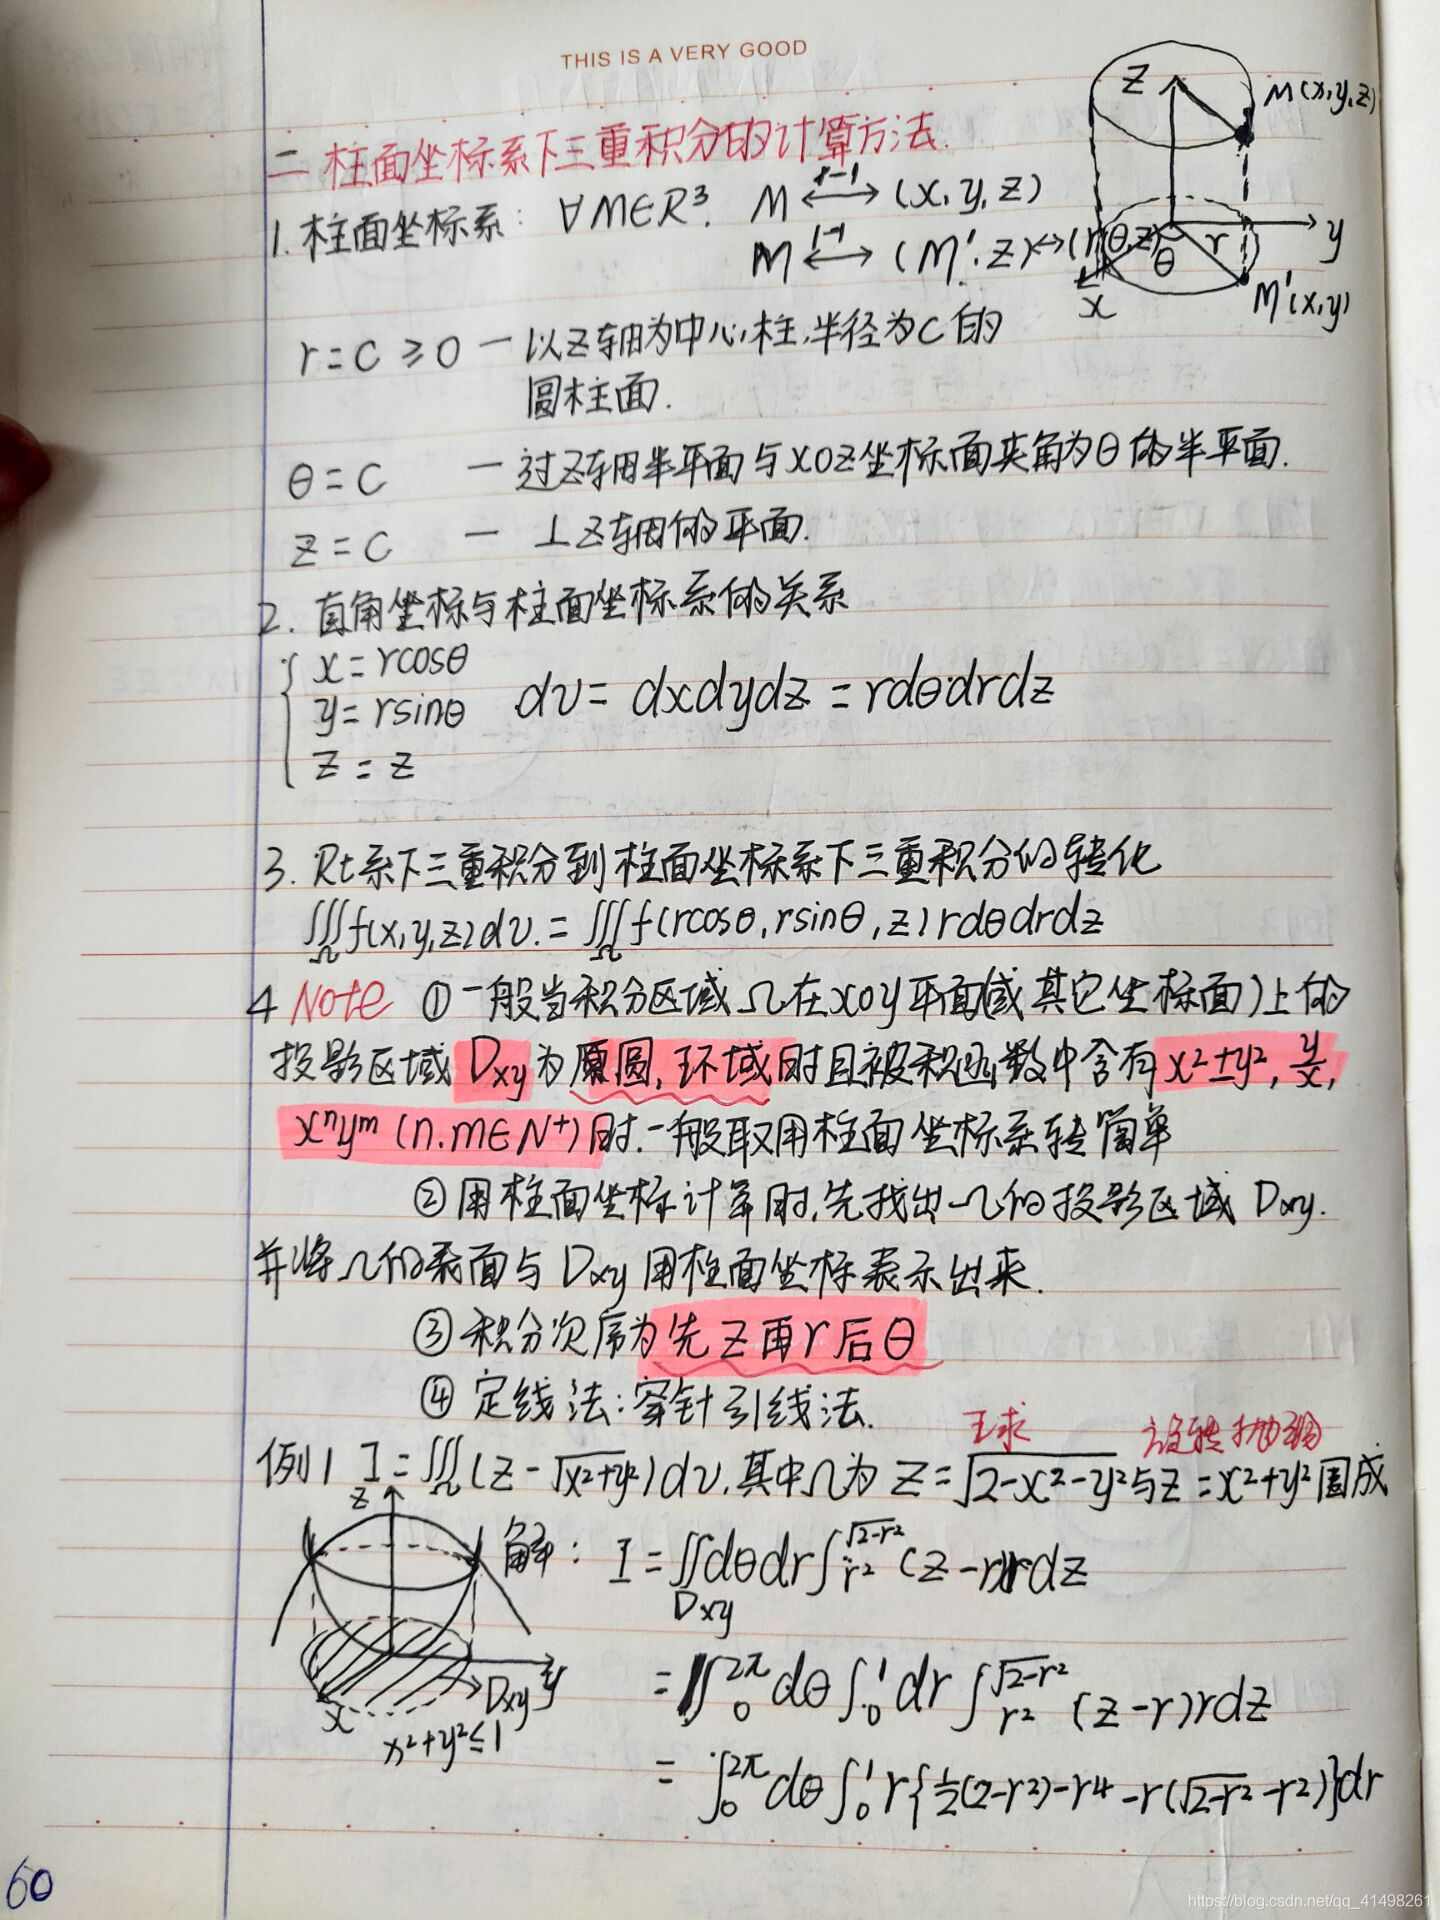 THIS IS A VERY GOOD
二 柱面坐标系下三重积分的计算方法.
1. 柱面坐标系: ∀M∈R³. M ⟷(1-1) (x, y, z)
M ⟷(1-1) (M', z) ↔ (r, θ, z)
z
M(x,y,z)
y
r
θ
x
M'(x,y)
r = C ≥ 0 — 以z轴为中心柱,半径为C的
圆柱面.
θ = C — 过z轴半平面与xoz坐标面夹角为θ的半平面.
z = C — ⊥z轴的平面.
2. 直角坐标与柱面坐标系的关系
{ x = rcosθ
y = rsinθ dv = dxdydz = rdθdrdz
z = z
3. Rt系下三重积分到柱面坐标系下三重积分的转化
∭Ω f(x,y,z)dv. = ∭Ω f(rcosθ, rsinθ, z) rdθdrdz
4 Note ①一般当积分区域Ω在xoy平面(或其它坐标面)上的
投影区域 Dxy为原圆,环域时且被积函数中含有x²±y², y/x,
xⁿyᵐ (n.m∈N⁺)时.一般取用柱面坐标系转简单
②用柱面坐标计算时,先找出Ω的投影区域 Dxy.
并将Ω的表面与Dxy用柱面坐标表示出来.
③积分次序为先z再r后θ
④定线法:穿针引线法.
上球 旋转抛物
例1 I = ∭Ω (z - √(x²+y²)) dv,其中Ω为 z = √(2-x²-y²) 与z = x²+y²围成
z
解: I = ∬Dxy dθdr ∫_{r²}^{√(2-r²)} (z-r)rdz
y
Dxy
x
x²+y²≤1
= ∫₀^{2π} dθ ∫₀¹ dr ∫_{r²}^{√(2-r²)} (z-r)rdz
= ∫₀^{2π} dθ ∫₀¹ r{½(2-r²)-r⁴-r(√(2-r²)-r²)}dr
60
https://blog.csdn.net/qq_41498261